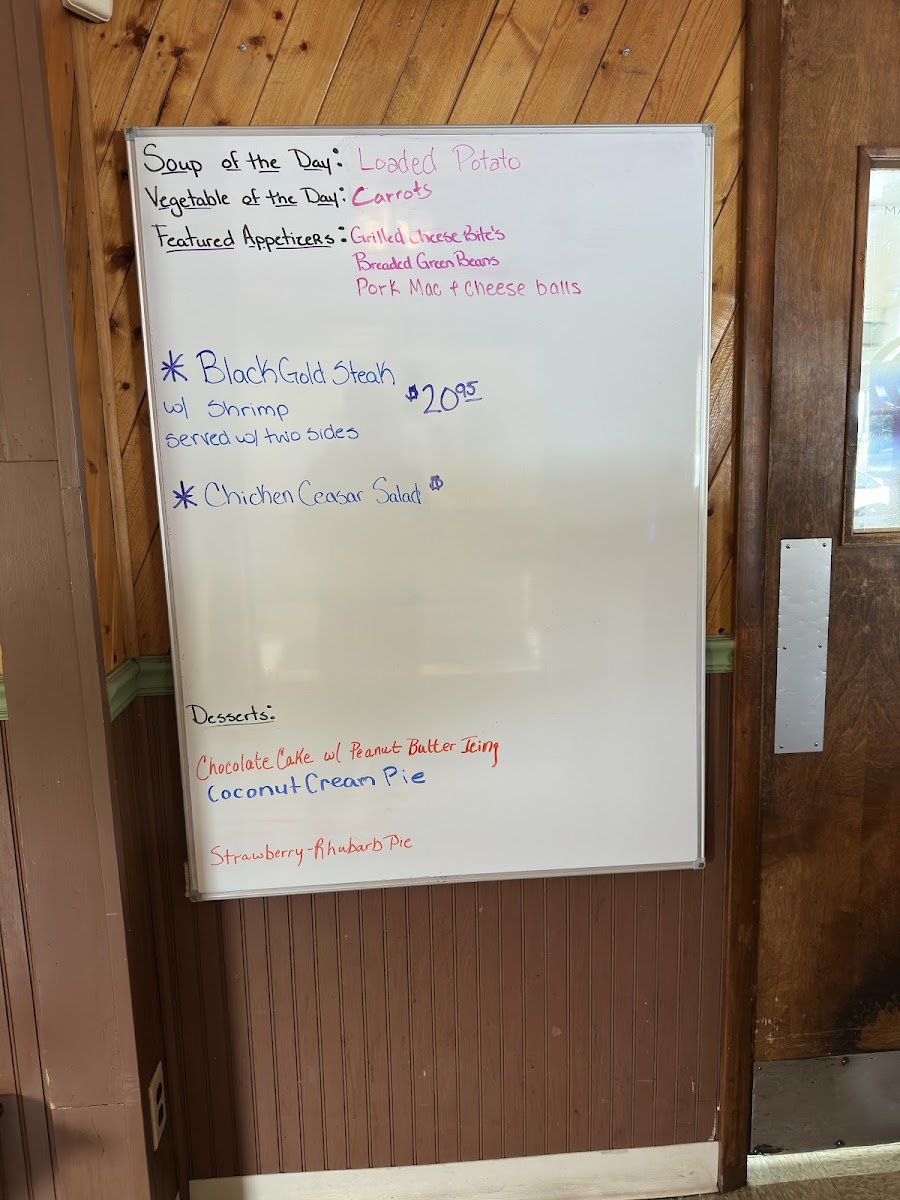 Soup of the Day: Loaded Potato
Vegetable of the Day: Carrots
Featured Appetizers: Grilled Cheese Bite's
Breaded Green Beans
Pork Mac + Cheese balls
* Black Gold Steak
w/ Shrimp $20.95
served w/ two sides
* Chicken Ceasar Salad $
Desserts:
Chocolate Cake w/ Peanut Butter Icing
Coconut Cream Pie
Strawberry-Rhubarb Pie